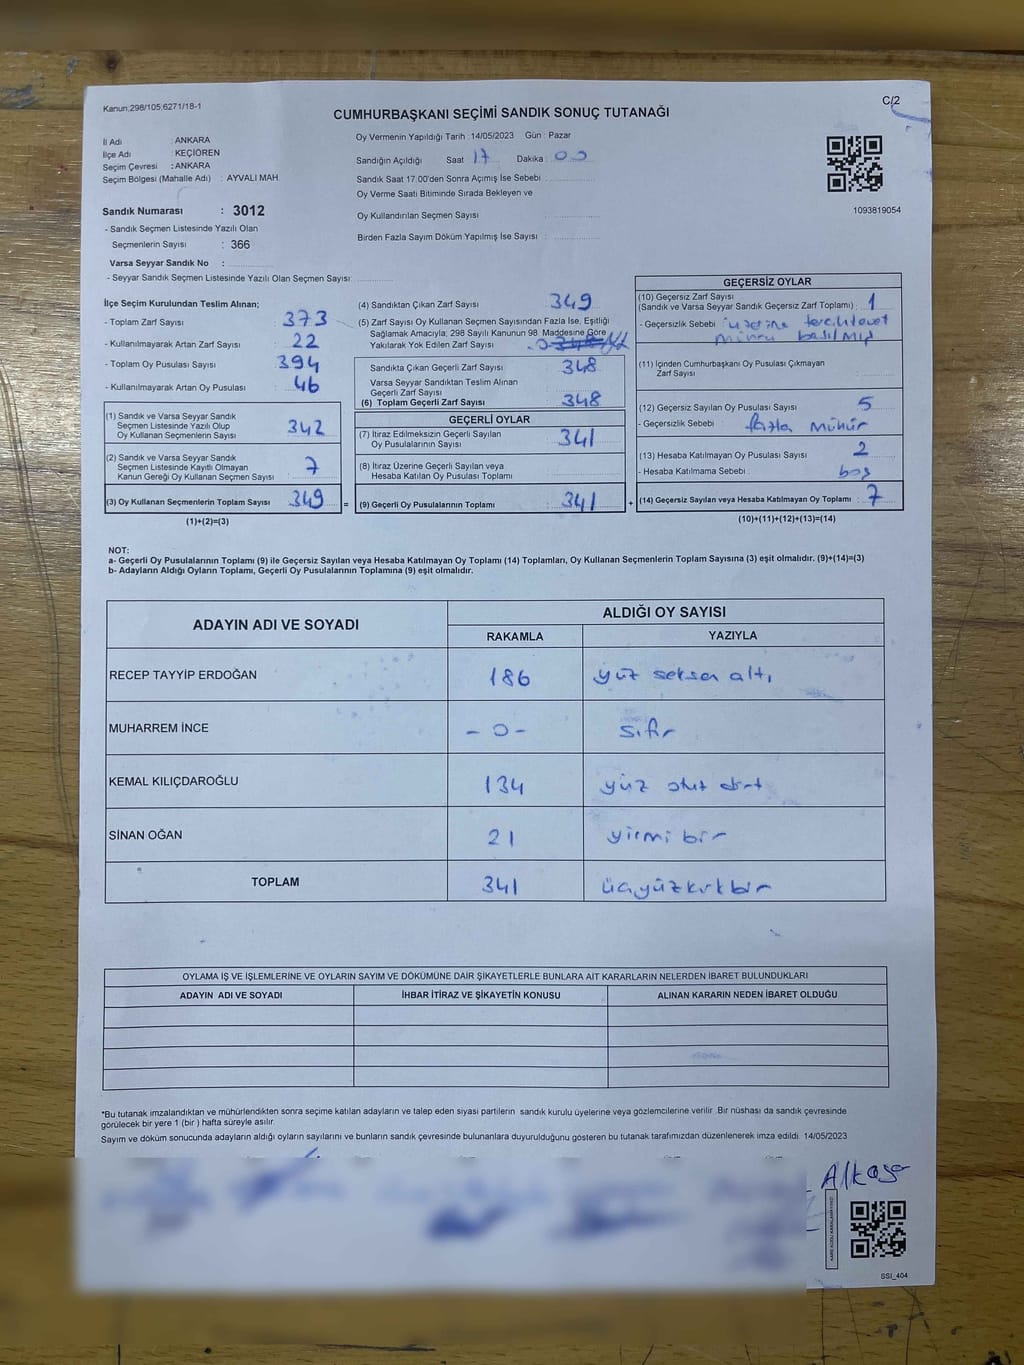 Kanun;298/105;6271/18-1
C/2
CUMHURBAŞKANI SEÇİMİ SANDIK SONUÇ TUTANAĞI
İl Adı : ANKARA
İlçe Adı : KEÇİÖREN
Seçim Çevresi : ANKARA
Seçim Bölgesi (Mahalle Adı) : AYVALI MAH.
Sandık Numarası : 3012
- Sandık Seçmen Listesinde Yazılı Olan
Seçmenlerin Sayısı : 366
Varsa Seyyar Sandık No :
- Seyyar Sandık Seçmen Listesinde Yazılı Olan Seçmen Sayısı:
Oy Vermenin Yapıldığı Tarih :14/05/2023 Gün : Pazar
Sandığın Açıldığı Saat 17 Dakika : 00
Sandık Saat 17:00'den Sonra Açımış İse Sebebi :
Oy Verme Saati Bitiminde Sırada Bekleyen ve
Oy Kullandırılan Seçmen Sayısı :
Birden Fazla Sayım Döküm Yapılmış İse Sayısı :
1093819054
İlçe Seçim Kurulundan Teslim Alınan;
- Toplam Zarf Sayısı : 373
- Kullanılmayarak Artan Zarf Sayısı : 22
- Toplam Oy Pusulası Sayısı : 394
- Kullanılmayarak Artan Oy Pusulası : 46
(1) Sandık ve Varsa Seyyar Sandık
Seçmen Listesinde Yazılı Olup
Oy Kullanan Seçmenlerin Sayısı : 342
(2) Sandık ve Varsa Seyyar Sandık
Seçmen Listesinde Kayıtlı Olmayan
Kanun Gereği Oy Kullanan Seçmen Sayısı : 7
(3) Oy Kullanan Seçmenlerin Toplam Sayısı : 349 =
(1)+(2)=(3)
(4) Sandıktan Çıkan Zarf Sayısı : 349
(5) Zarf Sayısı Oy Kullanan Seçmen Sayısından Fazla İse, Eşitliği
Sağlamak Amacıyla; 298 Sayılı Kanunun 98. Maddesine Göre
Yakılarak Yok Edilen Zarf Sayısı
Sandıkta Çıkan Geçerli Zarf Sayısı : 348
Varsa Seyyar Sandıktan Teslim Alınan
Geçerli Zarf Sayısı :
(6) Toplam Geçerli Zarf Sayısı : 348
GEÇERLİ OYLAR
(7) İtiraz Edilmeksizin Geçerli Sayılan
Oy Pusulalarının Sayısı : 341
(8) İtiraz Üzerine Geçerli Sayılan veya
Hesaba Katılan Oy Pusulası Toplamı :
(9) Geçerli Oy Pusulalarının Toplamı : 341 +
GEÇERSİZ OYLAR
(10) Geçersiz Zarf Sayısı
(Sandık ve Varsa Seyyar Sandık Geçersiz Zarf Toplamı) : 1
- Geçersizlik Sebebi : üzerine tercih/evet
mührü basılmış
(11) İçinden Cumhurbaşkanı Oy Pusulası Çıkmayan
Zarf Sayısı :
(12) Geçersiz Sayılan Oy Pusulası Sayısı : 5
- Geçersizlik Sebebi : fazla mühür
(13) Hesaba Katılmayan Oy Pusulası Sayısı : 2
- Hesaba Katılmama Sebebi : boş
(14) Geçersiz Sayılan veya Hesaba Katılmayan Oy Toplamı : 7
(10)+(11)+(12)+(13)=(14)
NOT:
a- Geçerli Oy Pusulalarının Toplamı (9) ile Geçersiz Sayılan veya Hesaba Katılmayan Oy Toplamı (14) Toplamları, Oy Kullanan Seçmenlerin Toplam Sayısına (3) eşit olmalıdır. (9)+(14)=(3)
b- Adayların Aldığı Oyların Toplamı, Geçerli Oy Pusulalarının Toplamına (9) eşit olmalıdır.
ADAYIN ADI VE SOYADI
ALDIĞI OY SAYISI
RAKAMLA YAZIYLA
RECEP TAYYİP ERDOĞAN 186 yüz seksen altı
MUHARREM İNCE - 0 - sıfır
KEMAL KILIÇDAROĞLU 134 yüz otuz dört
SİNAN OĞAN 21 yirmi bir
TOPLAM 341 üçyüzkırkbir
OYLAMA İŞ VE İŞLEMLERİNE VE OYLARIN SAYIM VE DÖKÜMÜNE DAİR ŞİKAYETLERLE BUNLARA AİT KARARLARIN NELERDEN İBARET BULUNDUKLARI
ADAYIN ADI VE SOYADI İHBAR İTİRAZ VE ŞİKAYETİN KONUSU ALINAN KARARIN NEDEN İBARET OLDUĞU
*Bu tutanak imzalandıktan ve mühürlendikten sonra seçime katılan adayların ve talep eden siyasi partilerin sandık kurulu üyelerine veya gözlemcilerine verilir. Bir nüshası da sandık çevresinde
görülecek bir yere 1 (bir ) hafta süreyle asılır.
Sayım ve döküm sonucunda adayların aldığı oyların sayılarını ve bunların sandık çevresinde bulunanlara duyurulduğunu gösteren bu tutanak tarafımızdan düzenlenerek imza edildi. 14/05/2023
SSI_404